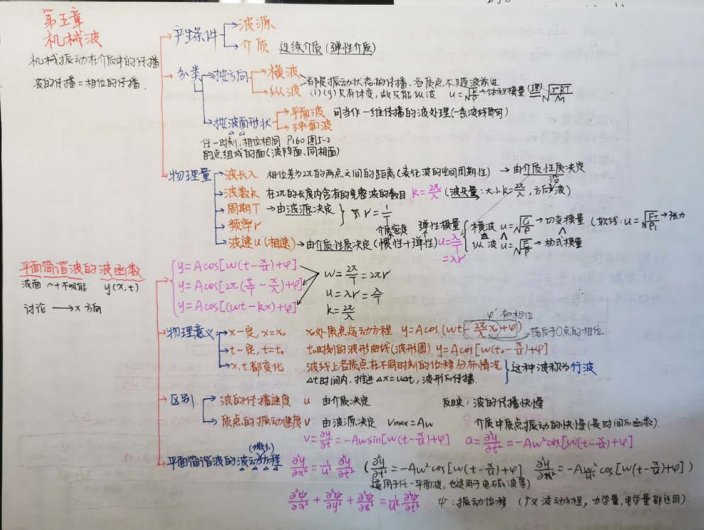 第五章
机械波
机械振动在介质中的传播
波的传播=相位的传播.
产生条件
波源
介质 连续介质(弹性介质)
分类
按方向
横波
纵波
都是振动状态的传播,各质点不随波旅进
(l)(g)只有体变,故只能纵波 u=√(K/ρ)→体积模量(理)√(γRT/M)
按波面形状
平面波
球面波
可当作一维传播的波处理(一条波线即可)
任一时刻,相位相同 P160图5-2
的点组成的面(波阵面、同相面)
物理量
波长λ 相位差为2π的两点之间的距离(表征波的空间周期性) →由介质性质决定
波数k 在2π的长度内含有的完整波的数目 k=2π/λ (波矢量:大小k=2π/λ,方向 波)
周期T →由波源决定
频率ν
ν=1/T
波速u(相速) →由介质性质决定(惯性+弹性) u=λ/T=λν
介质密度 弹性模量
横波 u=√(G/ρ)→切变模量 (软绳:u=√(F/ρ)→张力
纵波 u=√(E/ρ)→杨式模量
平面简谐波的波函数
波面 y(x,t)
讨论 ⟶x方向
y=Acos[ω(t-x/u)+φ]
y=Acos[2π(t/T-x/λ)+φ]
y=Acos[(ωt-kx)+φ]
ω=2π/T=2πν
u=λν=λ/T
k=2π/λ
物理意义
x一定,x=x₀ x₀处质点运动方程 y=Acos(ωt-2π/λ x₀+φ)
φ'初相位
落后于O点的相位
t一定,t=t₀ t₀时刻的波形曲线(波形图) y=Acos[ω(t₀-x/u)+φ]
x,t都变化 波线上各质点在不同时刻的位移分布情况
Δt时间内,推进Δx=uΔt,波形向传播
这种波称为行波
区别
波的传播速度 u 由介质决定 反映:波的传播快慢
质点的振动速度 v 由波源决定 vmax=Aω 介质中质点振动的快慢(是时间的函数).
v=∂y/∂t=-Aωsin[ω(t-x/u)+φ] a=∂²y/∂t²=-Aω²cos[ω(t-x/u)+φ]
平面简谐波的波动方程
(微分)
∂²y/∂x²=1/u² ∂²y/∂t² (∂²y/∂t²=-Aω²cos[ω(t-x/u)+φ] ∂²y/∂x²=-Aω²/u²cos[ω(t-x/u)+φ])
适用于任一平面波,也适用于电磁波等)
∂²ψ/∂x²+∂²ψ/∂y²+∂²ψ/∂z²=1/u² ∂²ψ/∂t² ψ:振动位移 (广义波动方程,力学量,电学量都适用).